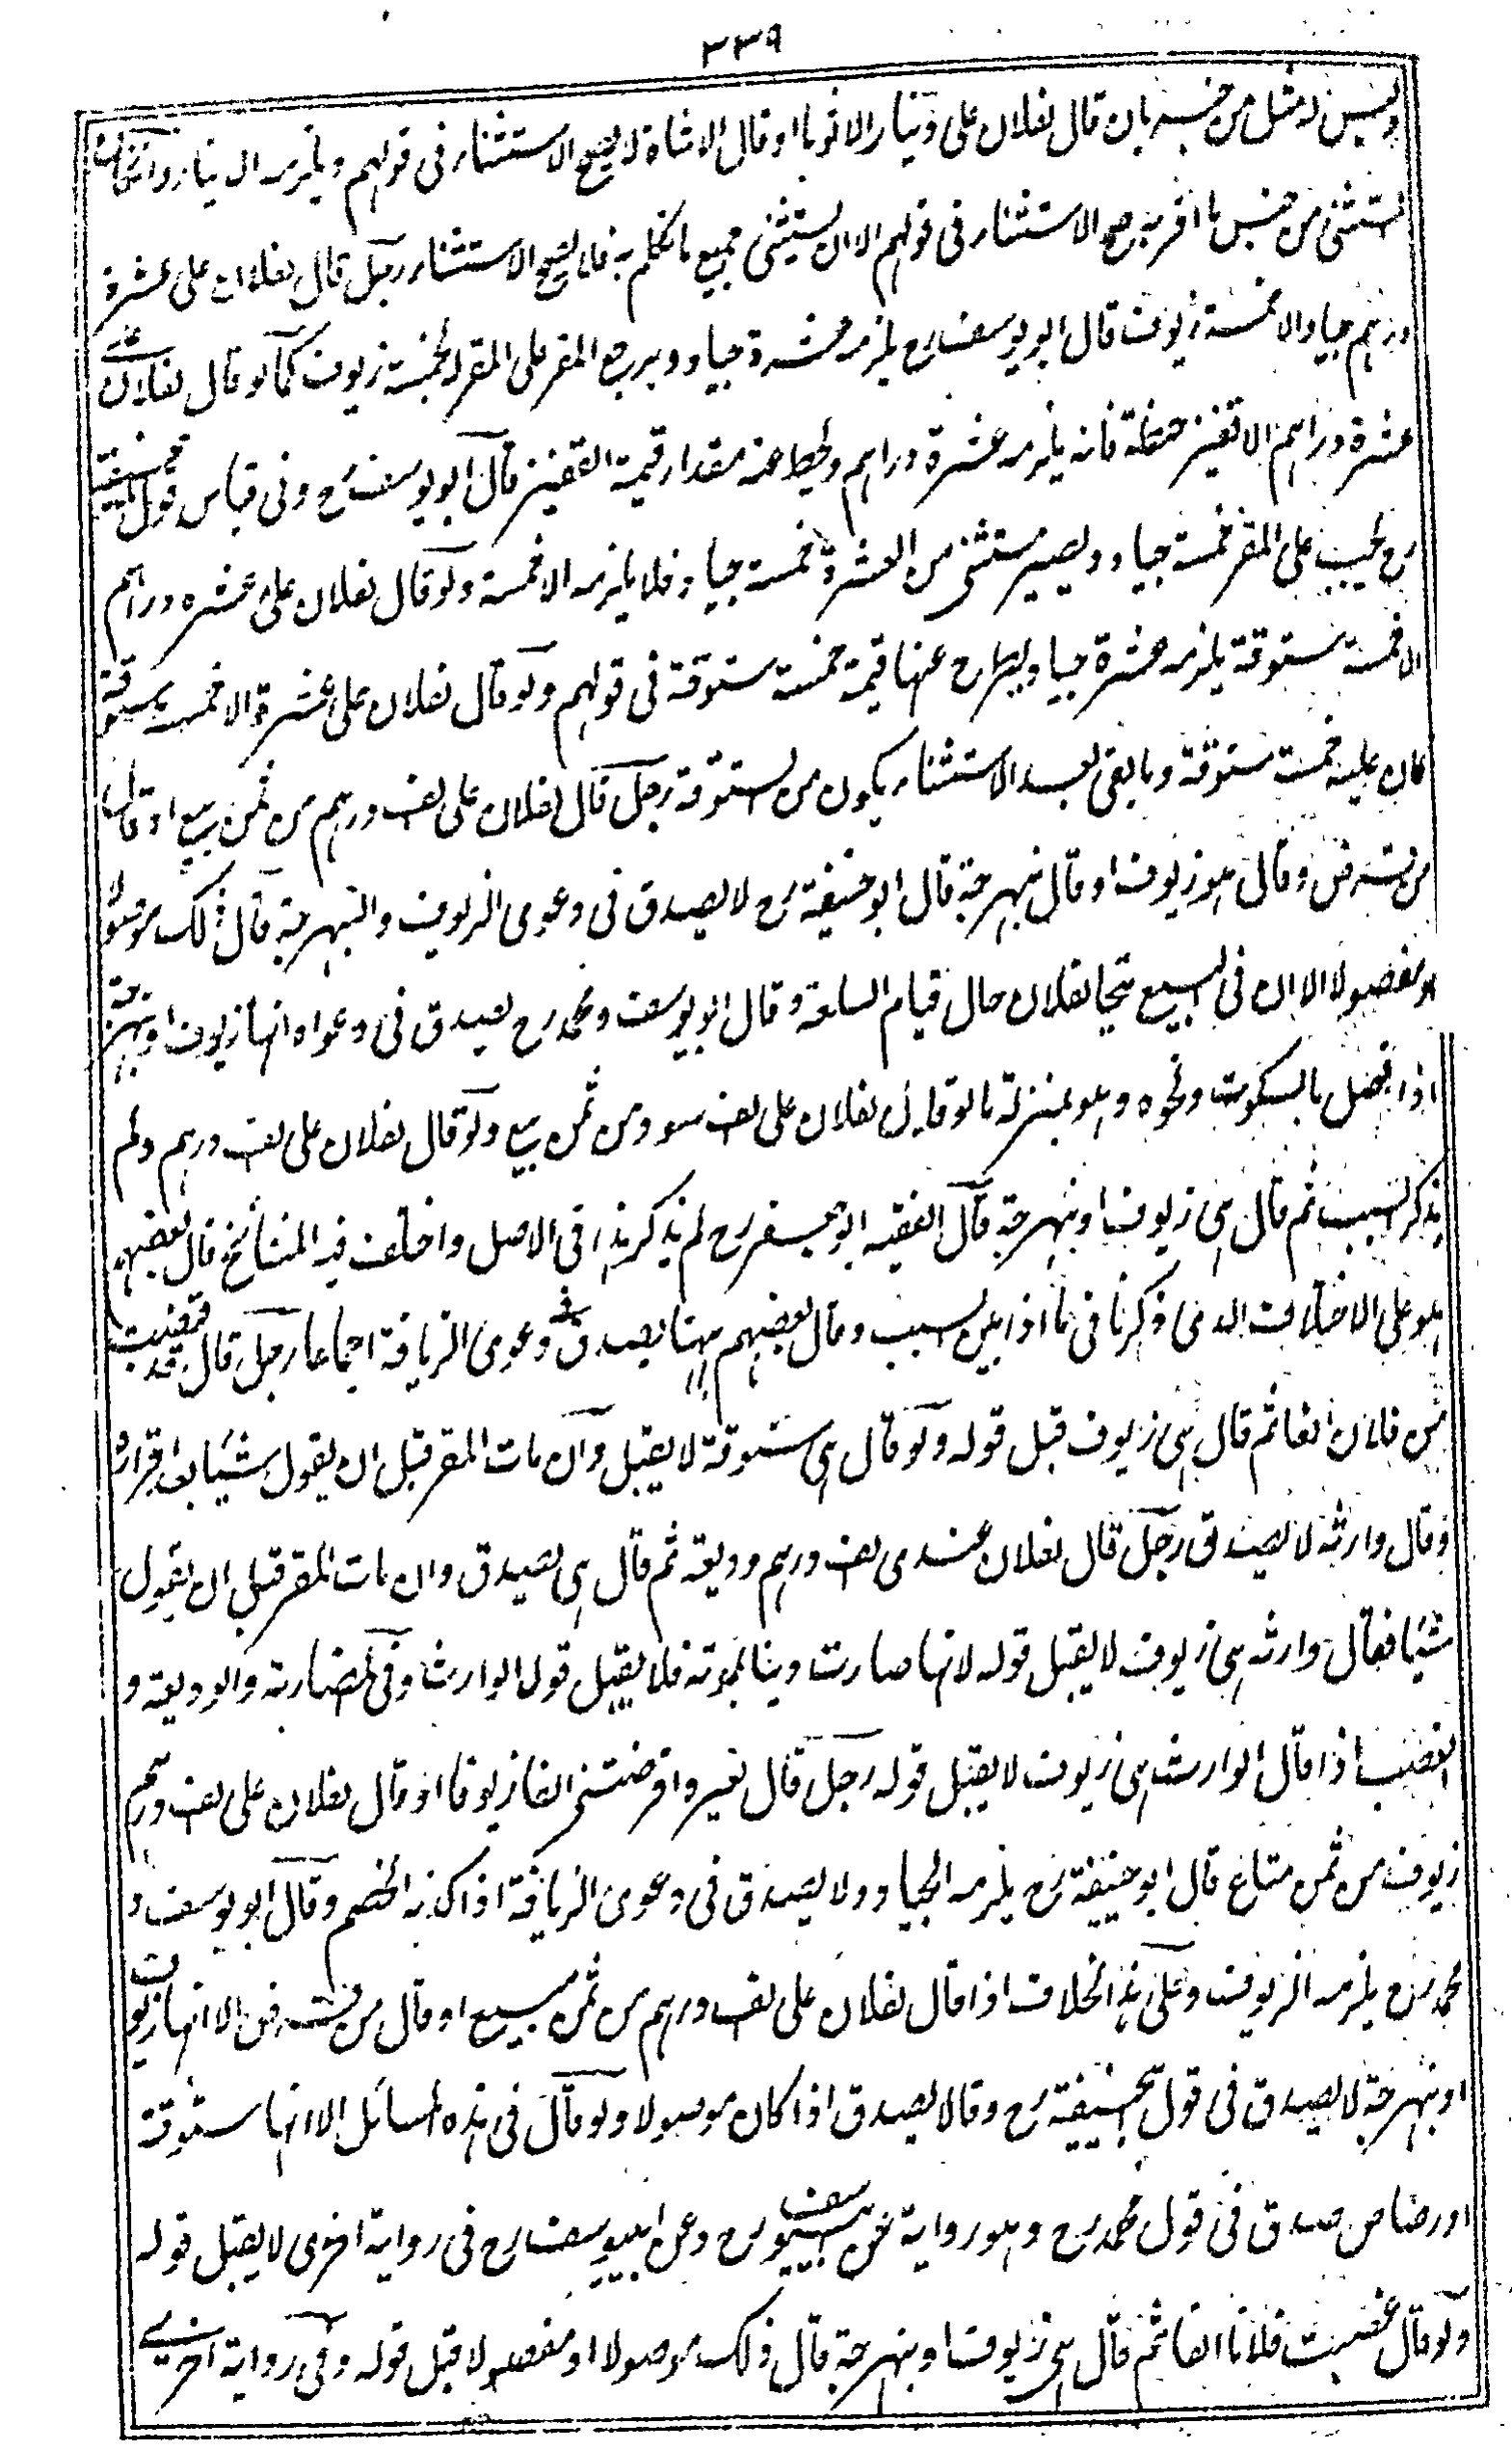 ٣٣٩
وليس له مثل من جنسه بان قال لفلان على دينار الا ثوبا او قال الا شاة لا يصح الاستثناء فى قولهم ويلزمه الدينار وان كان
المستثنى من جنس ما اقر به صح الاستثناء فى قولهم الا ان يستثنى جميع ما تكلم به فلا يصح الاستثناء رجل قال لفلان على عشرة
دراهم جياد الا خمسة زيوف قال ابو يوسف رح يلزمه عشرة جياد ويرجع المقر على المقر له بخمسة زيوف كما لو قال لفلان على
عشرة دراهم الا قفيز حنطة فانه يلزمه عشرة دراهم ويحط عنه مقدار قيمة القفيز قال ابو يوسف رح وفى قياس قول ابيحنيفة
رح يجب على المقر خمسة جياد ويصير مستثنى من العشرة خمسة جياد فلا يلزمه الا خمسة ولو قال لفلان على عشرة دراهم
الا خمسة ستوقة يلزمه عشرة جياد ويطرح عنها قيمة خمسة ستوقة فى قولهم ولو قال لفلان على عشرة الا خمسة ستوقة
كان عليه خمسة ستوقة وما بقى بعد الاستثناء يكون من الستوقة رجل قال لفلان على الف درهم من ثمن بيع او قال
من قرض وقال هو زيوف او قال نبهرجة قال ابو حنيفة رح لا يصدق فى دعوى الزيوف والنبهرجة قال ذلك موصولا
او مفصولا الا ان فى البيع يتحالفان حال قيام السلعة وقال ابو يوسف ومحمد رح يصدق فى دعواه انها زيوف او نبهرجة
اذا فصل بالسكوت ونحوه وهو بمنزلة ما لو قال لفلان على الف سود من ثمن بيع ولو قال لفلان على الف درهم ولم
يذكر السبب ثم قال هى زيوف او نبهرجة قال الفقيه ابو جعفر رح لم يذكر هذا فى الاصل واختلف فيه المشائخ قال بعضهم
هو على الاختلاف الذى ذكرنا فى ما اذا بين السبب وقال بعضهم ههنا يصدق فى دعوى الزيافة اجماعا رجل قال قد غصبت
من فلان الفا ثم قال هى زيوف قبل قوله ولو قال هى ستوقة لا يقبل وان مات المقر قبل ان يقول شيئا بعد اقراره
وقال وارثه لا يصدق رجل قال لفلان عندى الف درهم وديعة ثم قال هى يصدق وان مات المقر قبل ان يقول
شيئا فقال وارثه هى زيوف لا يقبل قوله لانها صارت دينا بموته فلا يقبل قول الوارث وفى المضاربة والوديعة و
الغصب اذا قال الوارث هى زيوف لا يقبل قوله رجل قال لغيره اقرضتنى الفا زيوفا او قال لفلان على الف درهم
زيوف من ثمن متاع قال ابو حنيفة رح يلزمه الجياد ولا يصدق فى دعوى الزيافة اذا كذبه الخصم وقال ابو يوسف و
محمد رح يلزمه الزيوف وعلى هذا الخلاف اذا قال لفلان على الف درهم من ثمن مبيع او قال من قرض الا انها زيوف
او نبهرجة لا يصدق فى قول ابيحنيفة رح وقالا يصدق اذا كان موصولا ولو قال فى هذه المسائل الا انها ستوقة
او رصاص صدق فى قول محمد رح وهو رواية عن ابييوسف رح وعن ابييوسف رح فى رواية اخرى لا يقبل قوله
ولو قال غصبت فلانا الفا ثم قال هى زيوف او نبهرجة قال ذلك موصولا او مفصولا قبل قوله وفى رواية اخرى